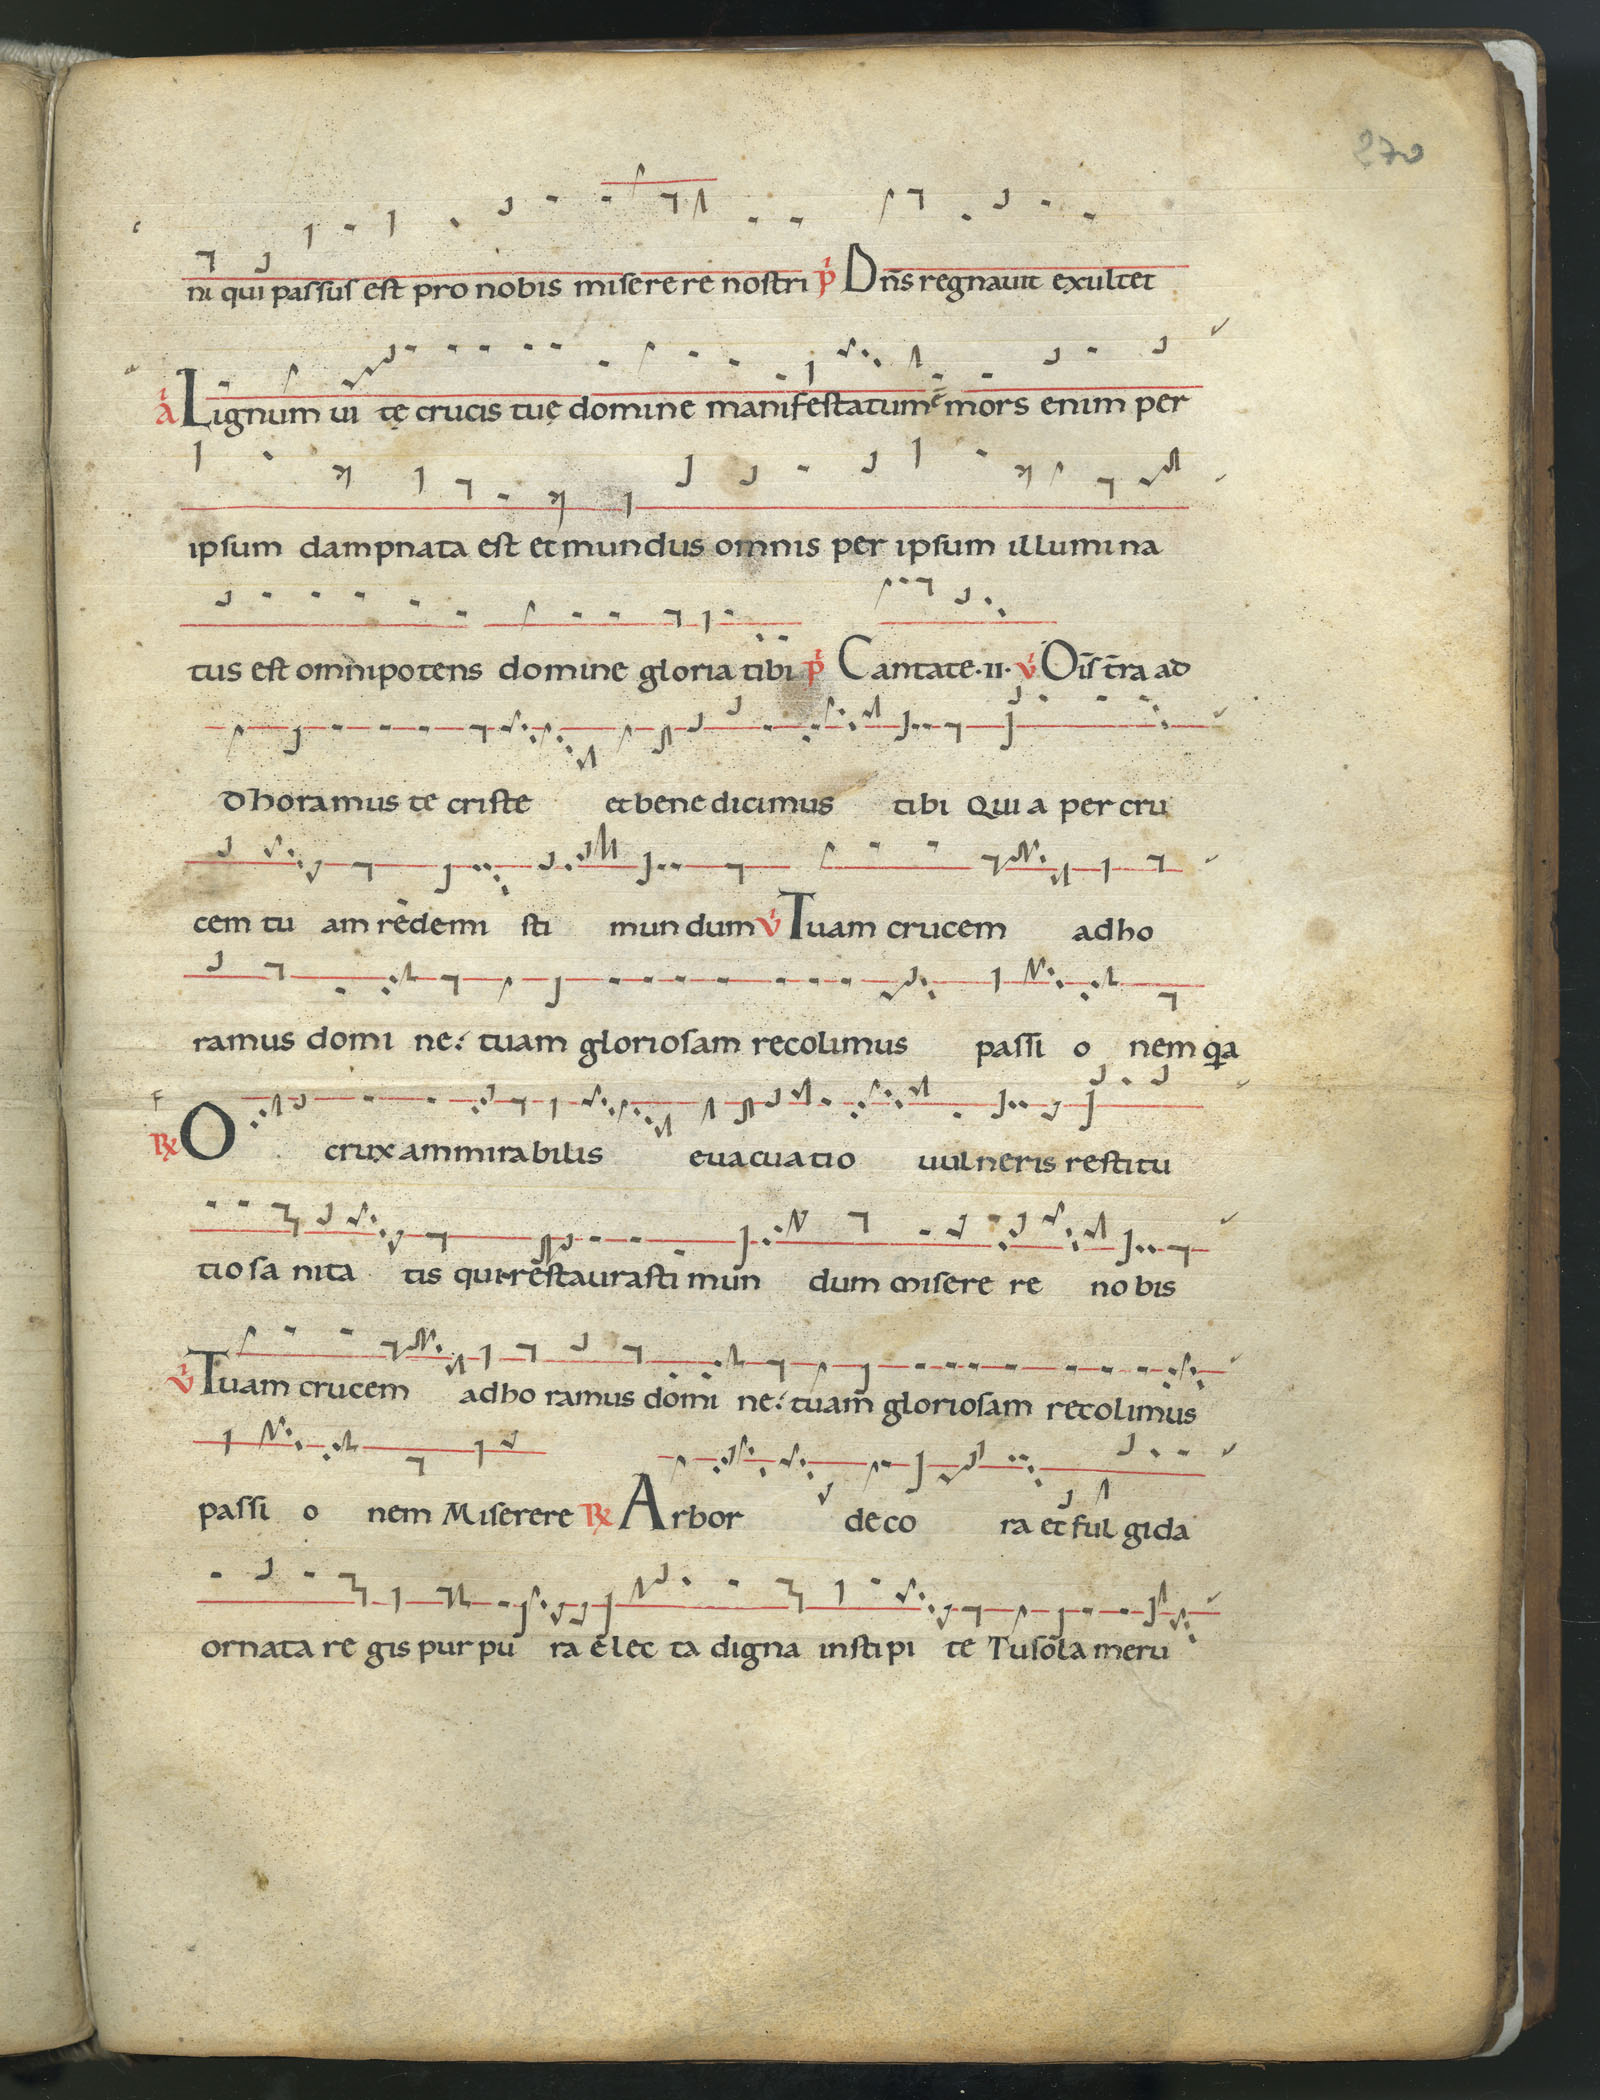 270
ni qui passus est pro nobis miserere nostri p̄ Dn̄s regnauit exultet
a Lignum ui tę crucis tuę domine manifestatum ē mors enim per
ipsum dampnata est et mundus omnis per ipsum illumina
tus est omnipotens domine gloria tibi p̄ Cantate .II. v̄ Oīs t̄ra ad
dhoramus te criste et bene dicimus tibi Qui a per cru
cem tu am redemi sti mun dum v̄ Tuam crucem adho
ramus domi ne: tuam gloriosam recolimus passi o nem qa
F
℞ O crux ammirabilis euacuatio uulneris restitu
tio sa nita tis qui restaurasti mun dum Misere re nobis
v̄ Tuam crucem adho ramus domi ne: tuam gloriosam recolimus
passi o nem Miserere ℞ Arbor deco ra et ful gida
ornata re gis purpu ra elec ta digna in stipi te Tu sola meru